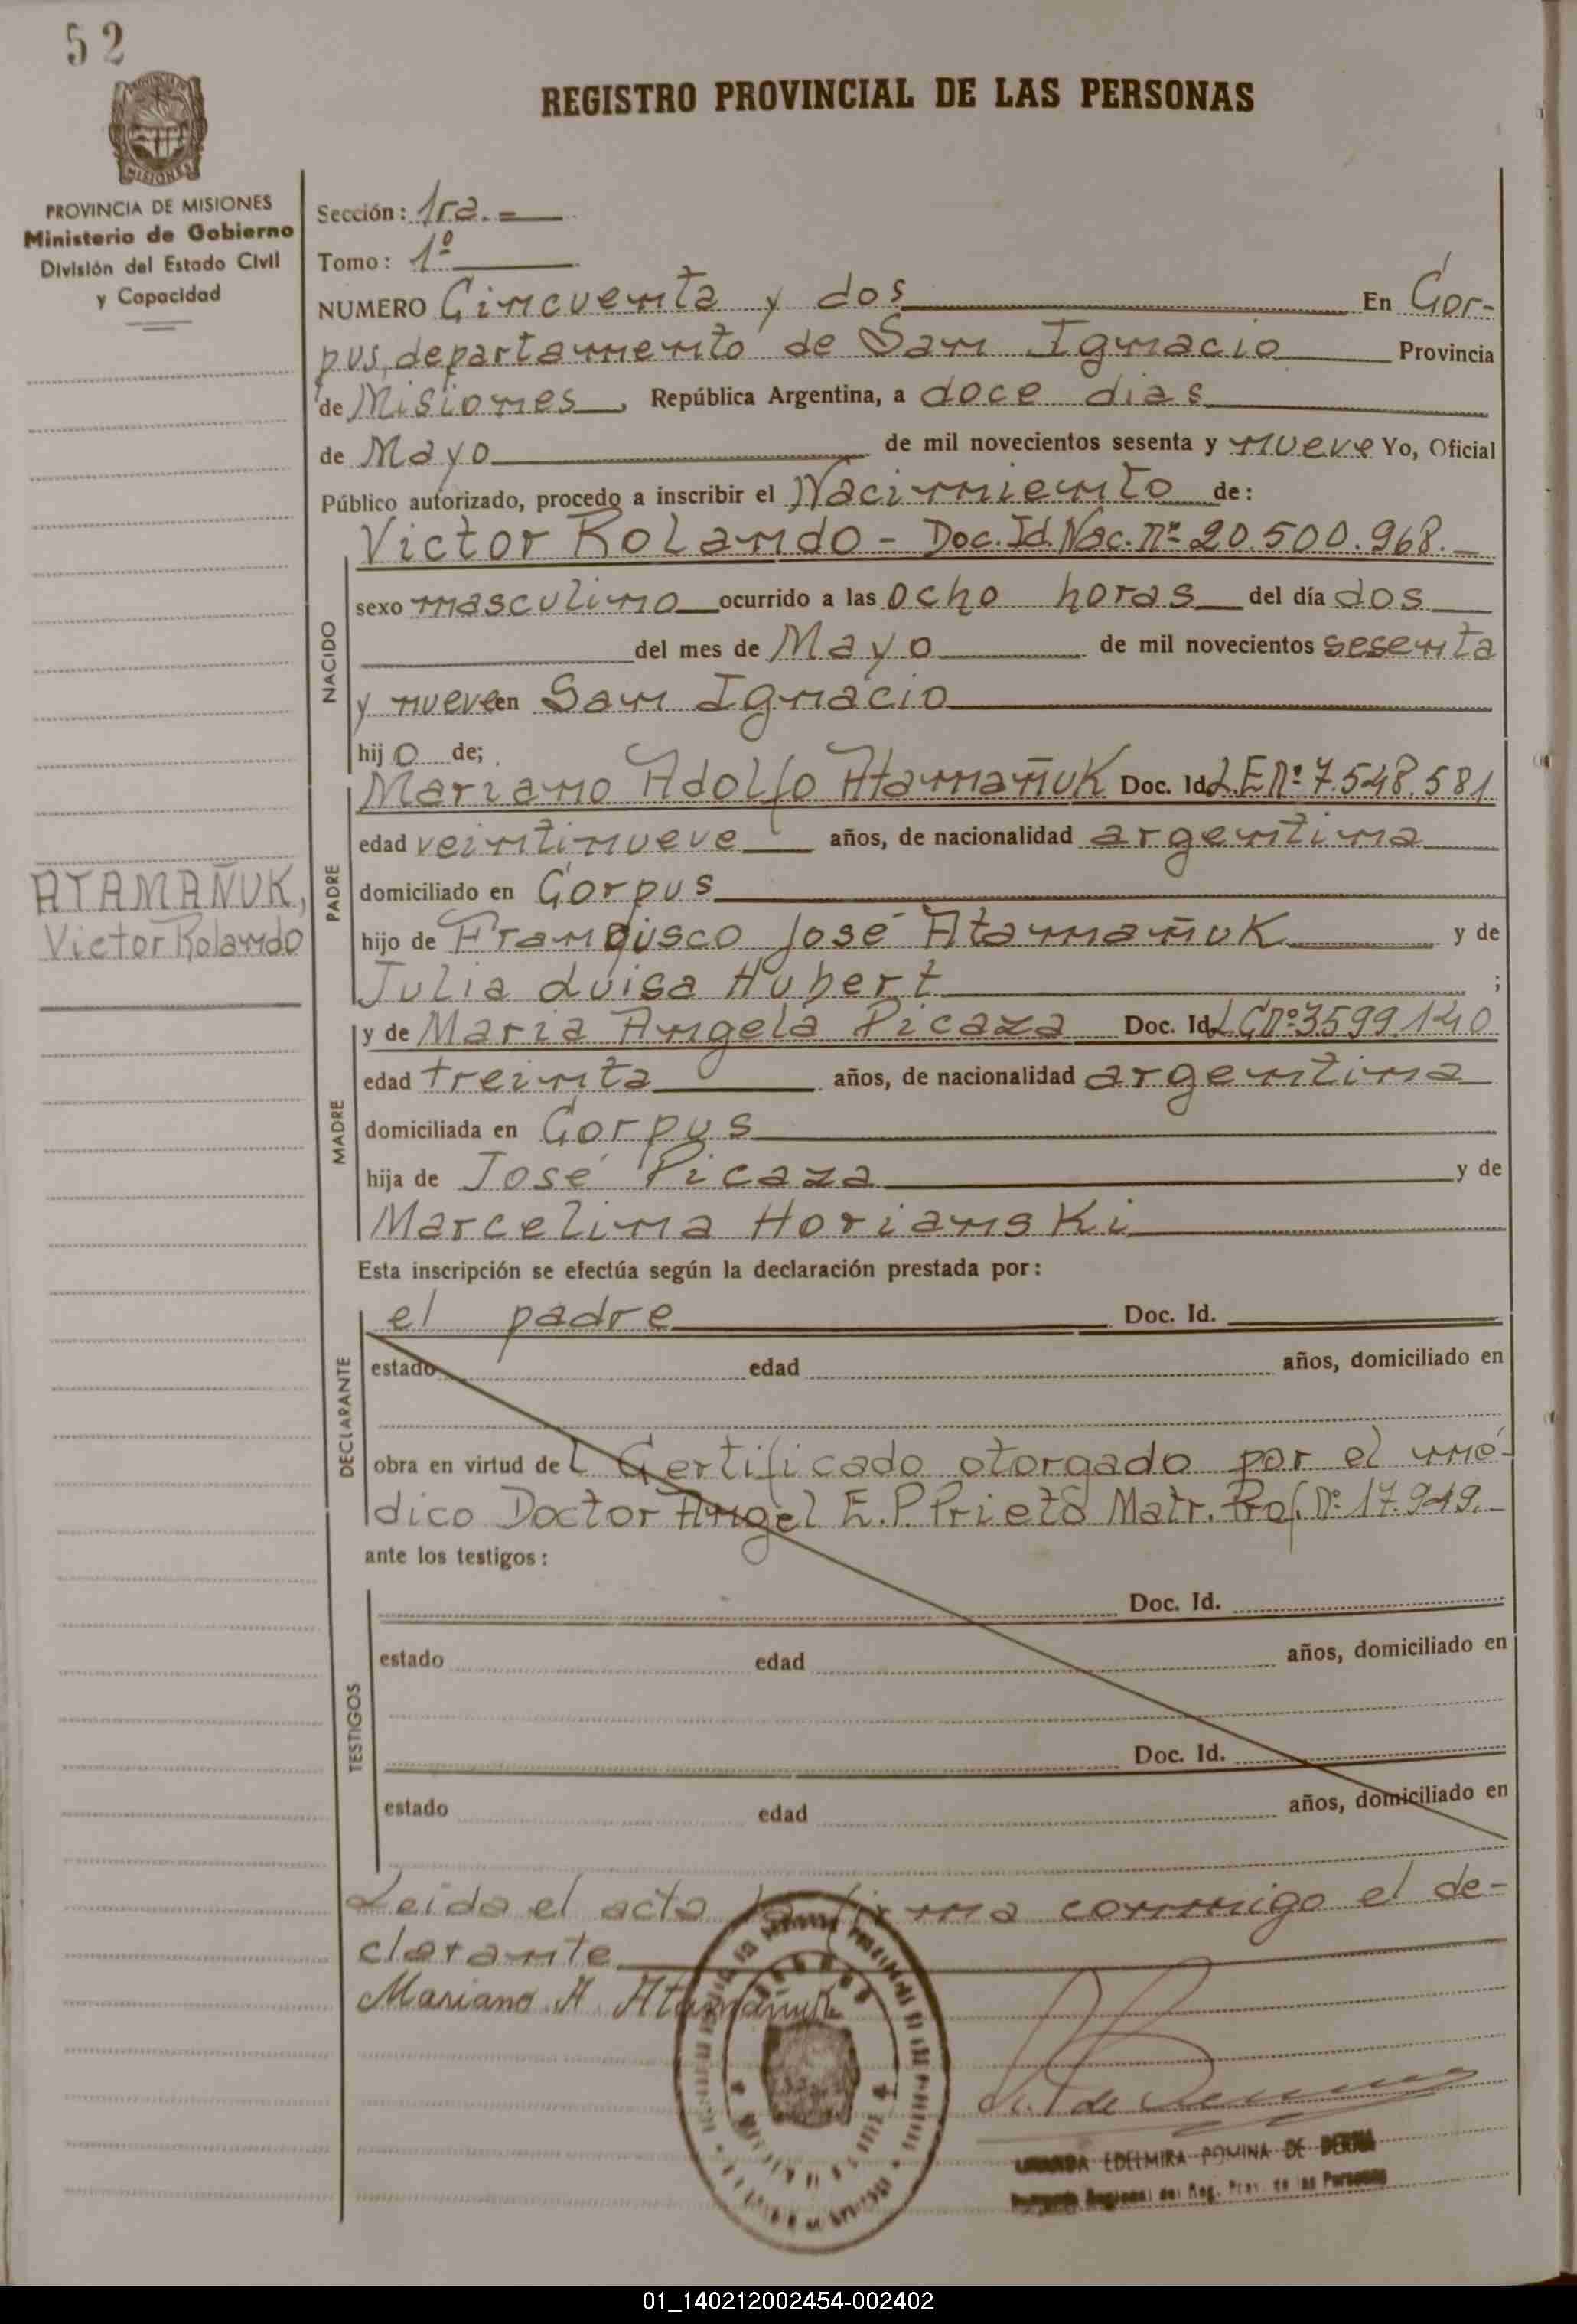 52
REGISTRO PROVINCIAL DE LAS PERSONAS
MISIONES
PROVINCIA DE MISIONES
Ministerio de Gobierno
División del Estado Civil
y Capacidad
Sección: 1ra.
Tomo: 1º
NUMERO Cincuenta y dos En Cor-
pus, departamento de San Ignacio Provincia
de Misiones, República Argentina, a doce dias
de Mayo de mil novecientos sesenta y nueve Yo, Oficial
Público autorizado, procedo a inscribir el Nacimiento de:
Victor Rolando - Doc. Id. Nac. Nº 20.500.968.
NACIDO
sexo masculino ocurrido a las ocho horas del día dos
del mes de Mayo de mil novecientos sesenta
y nueve en San Ignacio
hijo de;
Mariano Adolfo Atamañuk Doc. Id L.E Nº 7.548.581
PADRE
edad veintinueve años, de nacionalidad argentina
domiciliado en Corpus
ATAMAÑUK,
Victor Rolando
hijo de Francisco José Atamañuk y de
Julia Luisa Hubert ;
MADRE
y de Maria Angela Picaza Doc. Id L C Nº 3599.140
edad treinta años, de nacionalidad argentina
domiciliada en Corpus
hija de José Picaza y de
Marcelina Horianski
Esta inscripción se efectúa según la declaración prestada por:
DECLARANTE
el padre Doc. Id.
estado edad años, domiciliado en
obra en virtud del Certificado otorgado por el mé-
dico Doctor Angel E. P. Prieto Matr. Prof. Nº 17.949.
ante los testigos:
TESTIGOS
Doc. Id.
estado edad años, domiciliado en
Doc. Id.
estado edad años, domiciliado en
Leida el acta la firma conmigo el de-
clarante
Mariano A Atamañuk
EDELMIRA POMINA DE
Regional del Reg. Prov. de las Personas
01_140212002454-002402